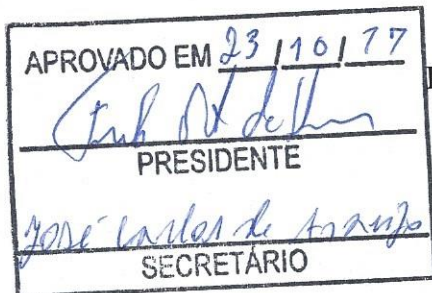 APROVADO EM 23/10/77
PRESIDENTE
José Carlos de Araujo
SECRETÁRIO